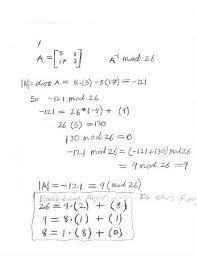 1
A = [5 8
17 3] A⁻¹ mod 26
|A| = det A = 5·(3) - 8(17) = -121
So -121 mod 26
-121 = 26*(-5) + (9)
26(5) = 130
130 mod 26 = 0
-121 mod 26 = (-121+130) mod 26
= 9 mod 26 = 9
|A| = -121 = 9 (mod 26)
Euclidean Algorithm: Is this
26 = 9·(2) + (8)
9 = 8·(1) + (1)
8 = 1·(8) + (0)